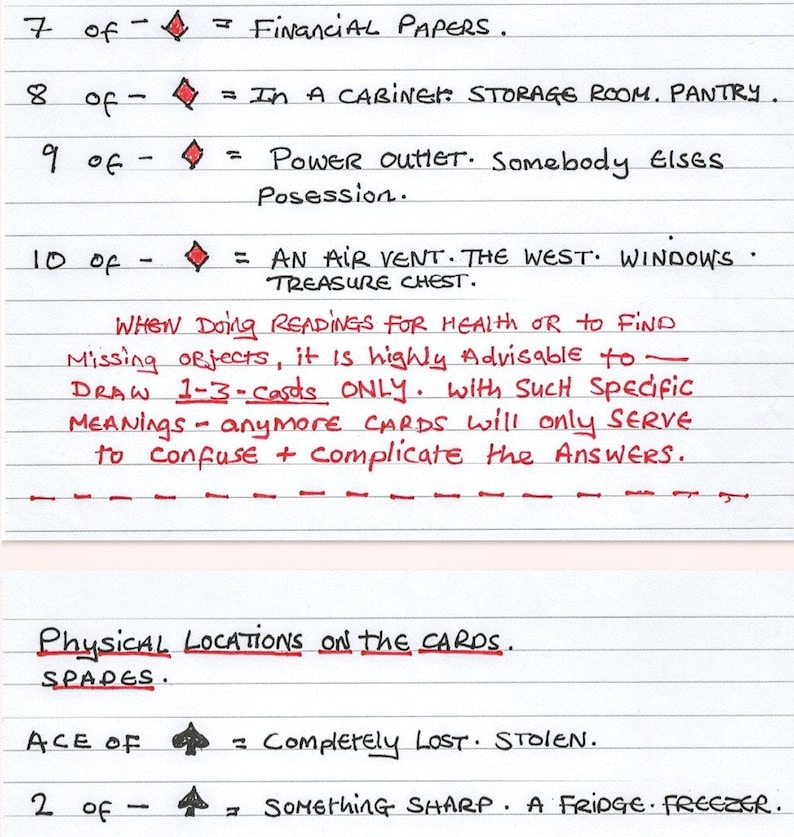 7 of - ♦ = Financial Papers.
8 of - ♦ = In A Cabinet. Storage Room. Pantry.
9 of - ♦ = Power outlet. Somebody Elses
Posession.
10 of - ♦ = An Air Vent. The West. Windows.
Treasure Chest.
When Doing Readings for Health or to Find
Missing objects, it is highly Advisable to —
Draw 1-3-cards ONLY. With such specific
Meanings - anymore cards will only serve
to confuse + complicate the Answers.
Physical Locations on the Cards.
Spades.
Ace of ♠ = Completely Lost. Stolen.
2 of - ♠ = Something Sharp. A Fridge. Freezer.